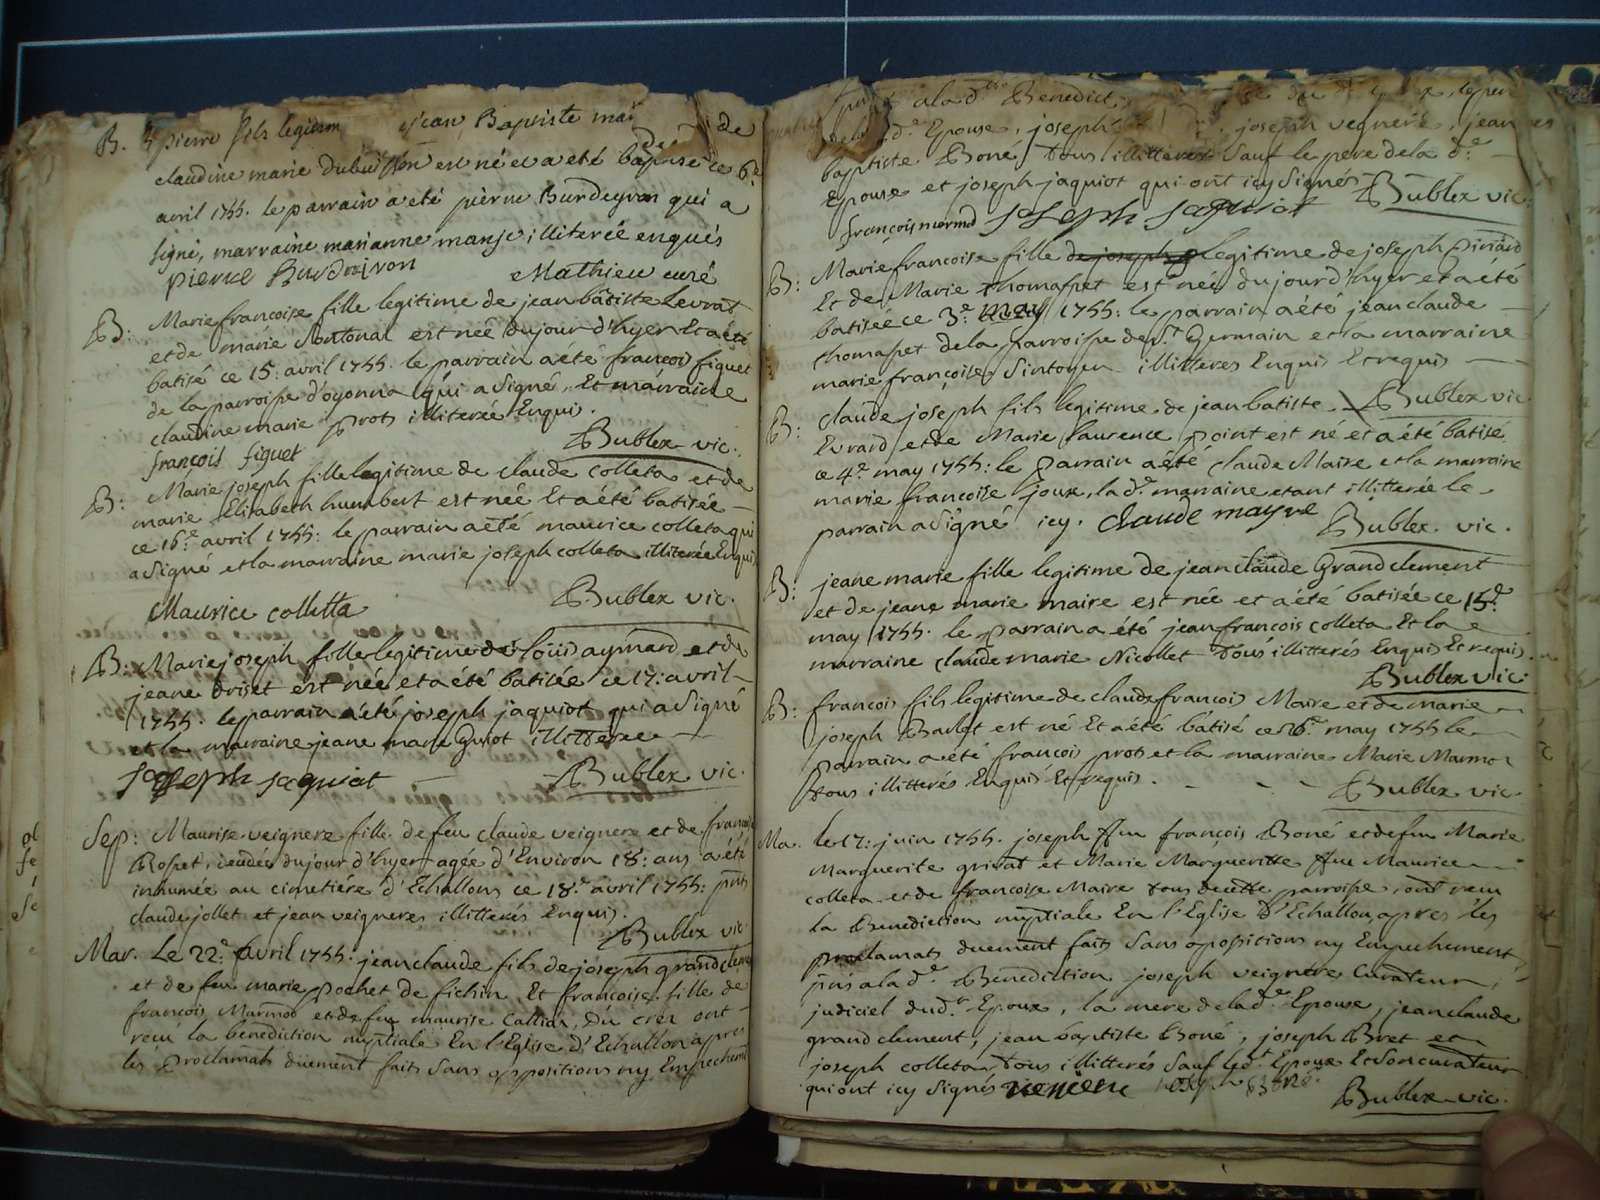 B. pierre fils legitim jean Baptiste mai de
claudine marie dubuisson est né et a eté baptisé ce 6e
avril 1755. le parrain a eté pierre Burdeyron qui a
signé, marraine marianne manje illiterée enquis
pierre Burdeiron Mathieu curé
B: Marie francoise fille legitime de jean bâtiste Levrat
et de marie Montonal est née du jour d'hyer Et a été
batisé ce 15: avril 1755. le parrain a été francois figuet
de la parroisse d'oyonna qui a Signé, Et marraine
claudine marie prots illiterée Enquis.
françois figuet Bublex vic.
B: Marie joseph fille legitime de claude colleta et de
marie Elisabeth humbert est née Et a été batisée
ce 16e avril 1755: le parrain a été maurice colleta qui
a Signé et la marraine marie joseph colleta illiterée Enquis
Maurice colletta Bublex vic.
B: Marie joseph fille legitime de loüis aymard et de
jeane briset est née et a été batisée ce 17: avril
1755: le parrain a été joseph jaquiot qui a Signé
et la marraine jeane marie Guiot illitterée
joseph jaquiot Bublex vic.
Sep: Maurise veignere fille de feu claude veignere et de françoise
Roset, decedée du jour d'hyer agée d'Environ 18: ans a été
inhumée au cimetiére d'Echallons ce 18e avril 1755: pnts
claude jollet et jean veigneres illitterés Enquis.
Bublex vic.
Mar. Le 22e Avril 1755: jean claude fils de joseph grandclement
et de feu marie pochet de fichin Et francoise fille de
francois Marmod et de feu maurise Callian, Du cret ont
recu la benediction nuptiale En l'Eglise d'Echallon apres
les proclamats düement faits Sans oppositions ny Empechemt
a la dte Benedict
de la de Epouse, joseph joseph vegnere, jean
baptiste Boné, tous illitteres Sauf le pere de la de
Epouse et joseph jaquiot qui ont icy Signés Bublex vic.
françois mermod joseph jaquiot
B: Marie francoise fille de joseph legitime de joseph pinard
Et de Marie thomasset est née du jour d'hyer et a été
batisée ce 3e may 1755: le parrain a été jean claude
thomasset de la parroisse de St Germain et la marraine
marie françoise Sintoyen illitteres Enquis Et requis
Bublex vic
B: claude joseph fils legitime de jean batiste
Evrard et de Marie laurence point est né et a été batisé
ce 4e may 1755: le parrain a été claude Maire et la marraine
marie françoise joux, la de marraine etant illitterée le
parrain a Signé icy. claude mayre Bublex vic.
B: jeane marie fille legitime de jean claude Grandclement
et de jeane marie maire est née et a été batisée ce 15e
may 1755. le parrain a été jean francois colleta Et la
marraine claude marie Nicollet tous illitterés Enquis Et requis.
Bublex vic.
B: francois fils legitime de claude francois Maire et de marie
joseph Barlet est né Et a été bâtisé ce 26e may 1755 le
parrain a été francois prots et la marraine Marie Marmo
tous illitterés Enquis Et requis. Bublex vic
Ma. le 17: juin 1755. joseph feu françois Boné et de feu Marie
Marguerite grivat et Marie Margueritte feu Maurice
colleta et de francoise Maire tous de cette parroisse, ont recu
la Benediction nuptiale En l'Eglise d'Echallon apres les
proclamats duement faits Sans opositions ny Empechement,
pnts a la de Benediction joseph veignere Curateur
judiciel dudt Epoux, la mere de la de Epouse, jean claude
grand clement, jean baptiste Boné, joseph Bret et
joseph colleta tous illitterés Sauf ledt Epoux Et Son curateur
qui ont icy Signés
Bublex vic.